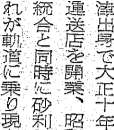 湊出身で大正十年
運送店を開業、昭
統合と同時に砂利
れが軌道に乗り現